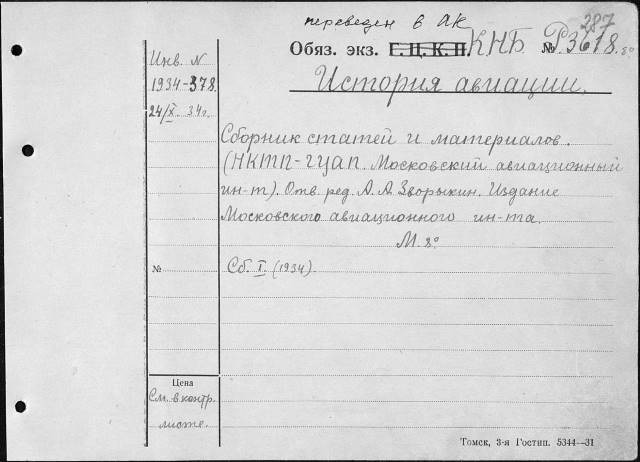 переведен в АК
287
Обяз. экз. Г. Ц. К. П. КНБ № Р3618. 8°
История авиации.
Инв. N
1934-378.
24/X 34г.
Сборник статей и материалов.
(НКТП-ГУАП. Московский авиационный
ин-т). Отв. ред. А. А. Зворыкин. Издание
Московского авиационного ин-та.
М. 8°
№
Сб. I. (1934).
Цена
См. в контр.
листе.
Томск, 3-я Гостип. 5344—31